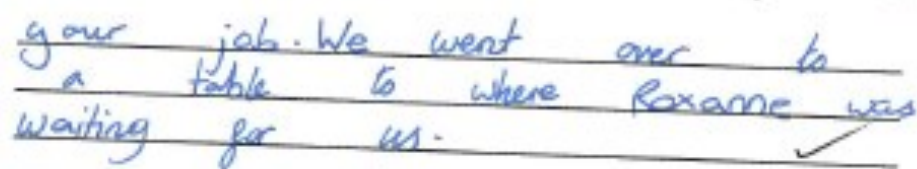 your job. We went over to
a table to where Roxanne was
waiting for us.